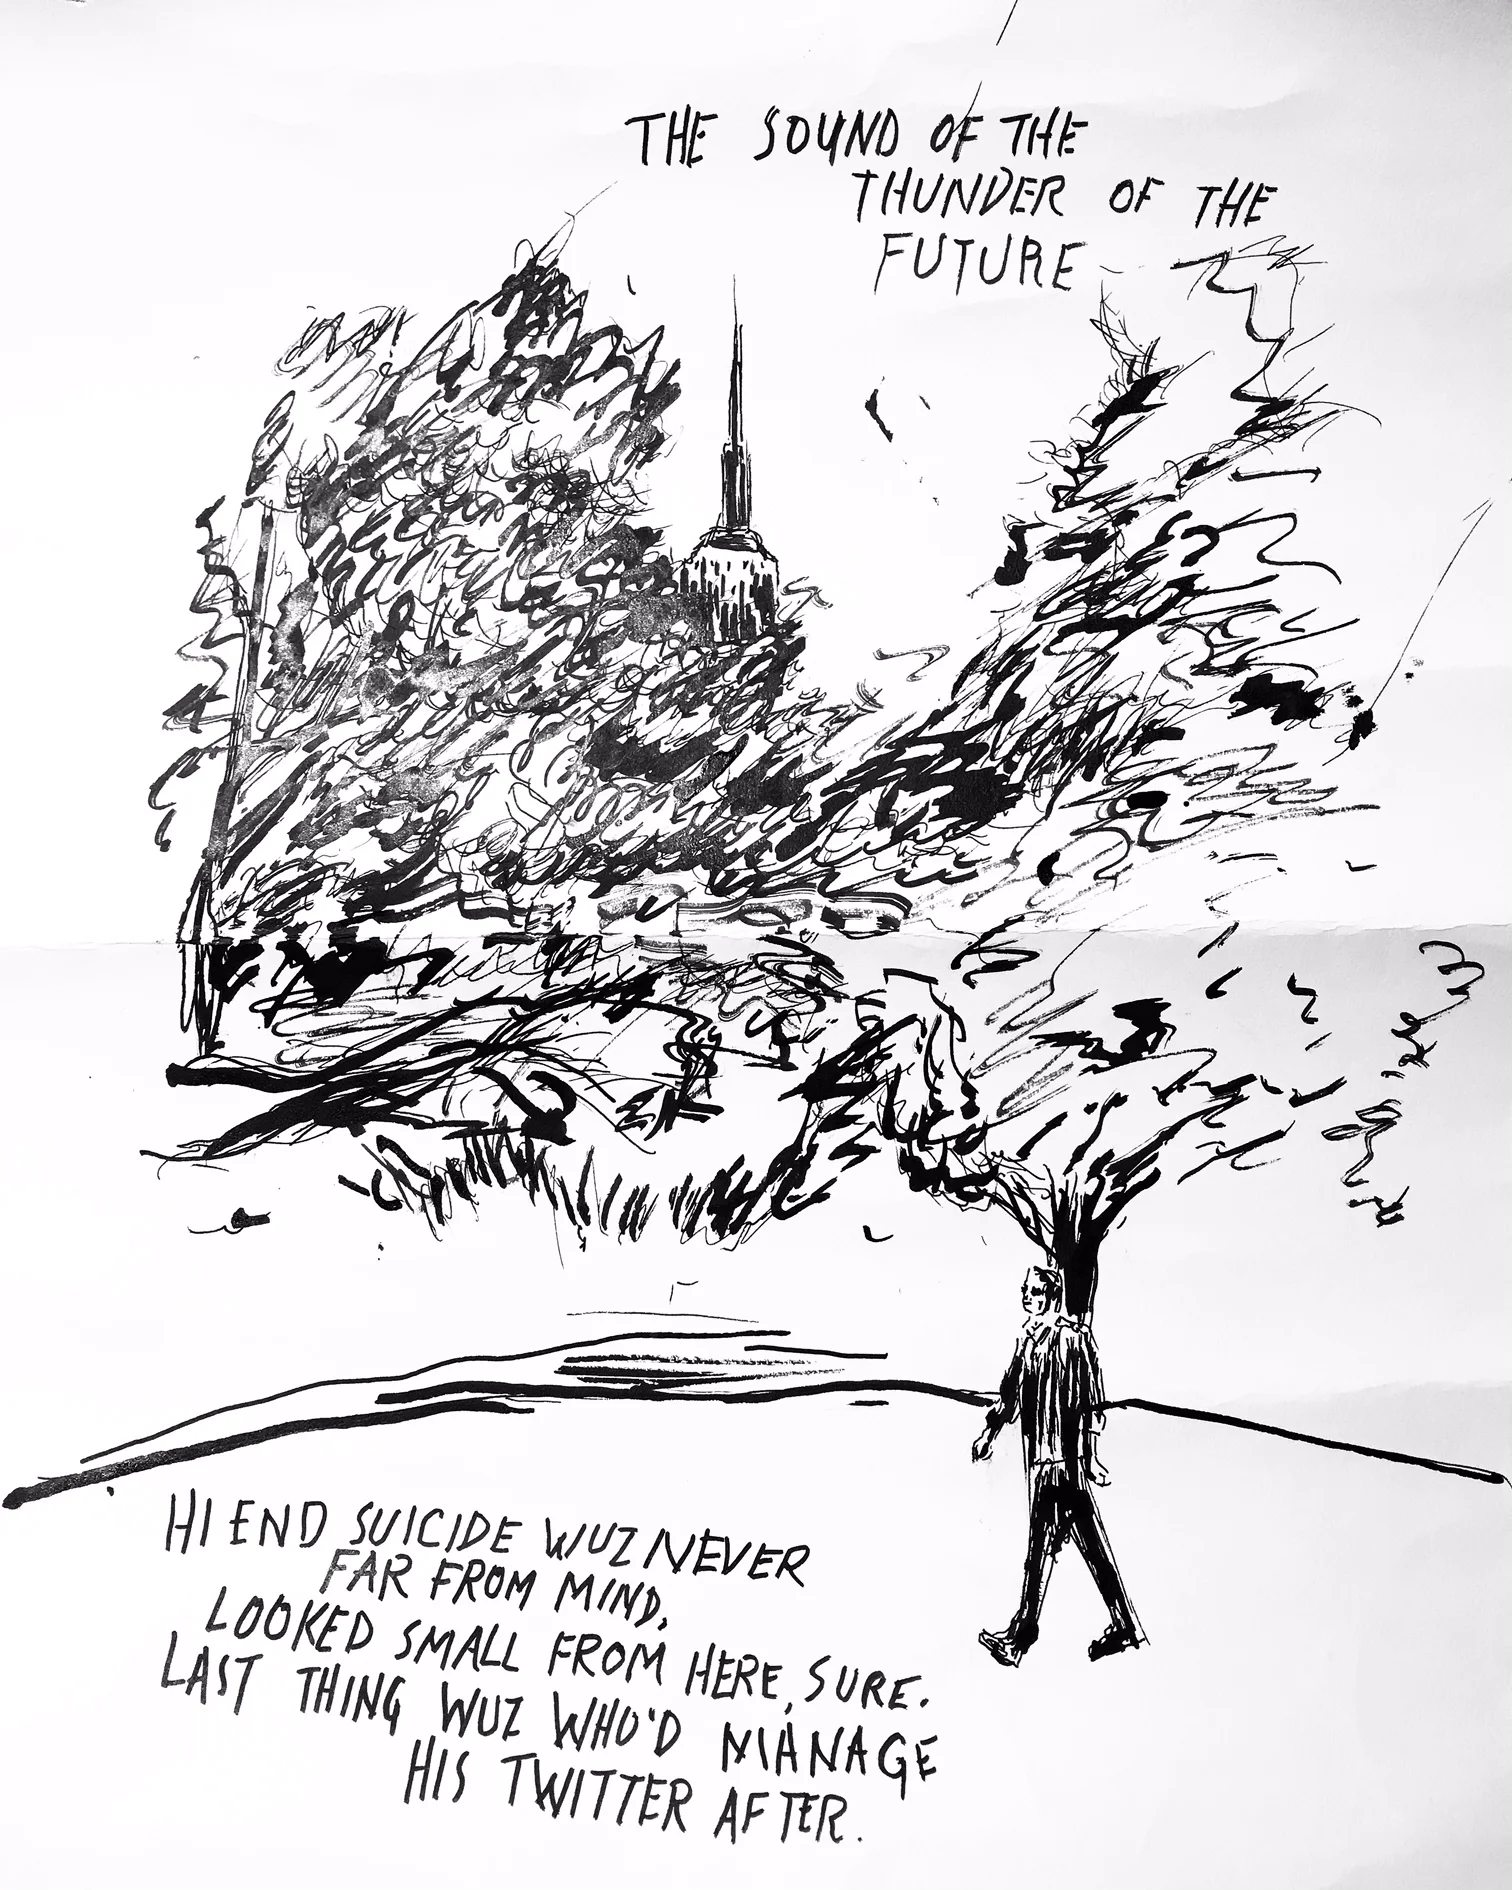 THE SOUND OF THE
THUNDER OF THE
FUTURE
HI END SUICIDE WUZ NEVER
FAR FROM MIND,
LOOKED SMALL FROM HERE, SURE.
LAST THING WUZ WHO'D MANAGE
HIS TWITTER AFTER.